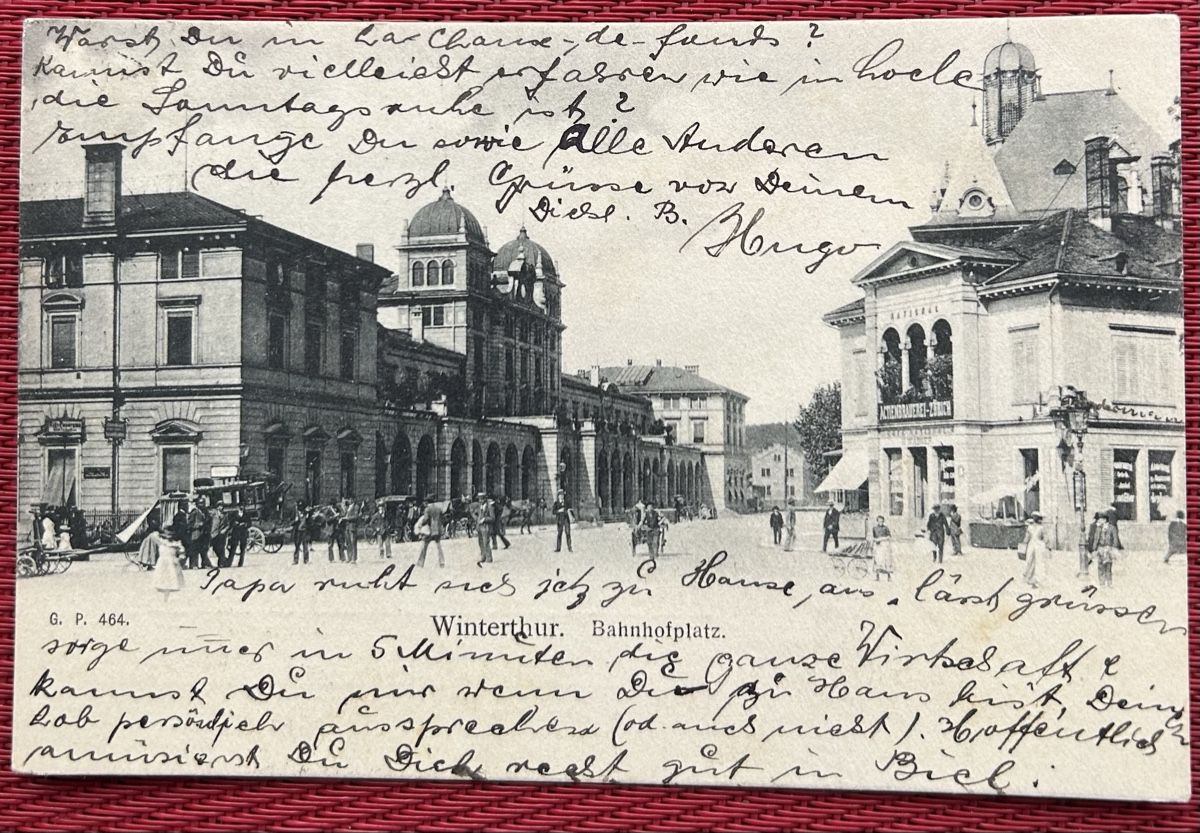 Warst Du in La Chaux-de-fonds?
Kannst Du vielleicht erfahren wie in Locle
die Sonntagsruhe ist?
Empfange Du sowie Alle Anderen
die herzl. Grüsse von Deinem
Dich l. B.
Hugo
NATIONAL
ACTIENBRAUEREI-ZÜRICH
Papa ruht sich jetz zu Hause aus, lässt grüssen
G. P. 464.
Winterthur. Bahnhofplatz.
sorge in 5 Minuten die ganze Wirtschaft &
kannst Du mir wenn Du zu Haus bist, Dein
Lob persönlich aussprechen (od. auch nicht). Hoffentlich
amüsierst Du Dich recht gut in Biel!